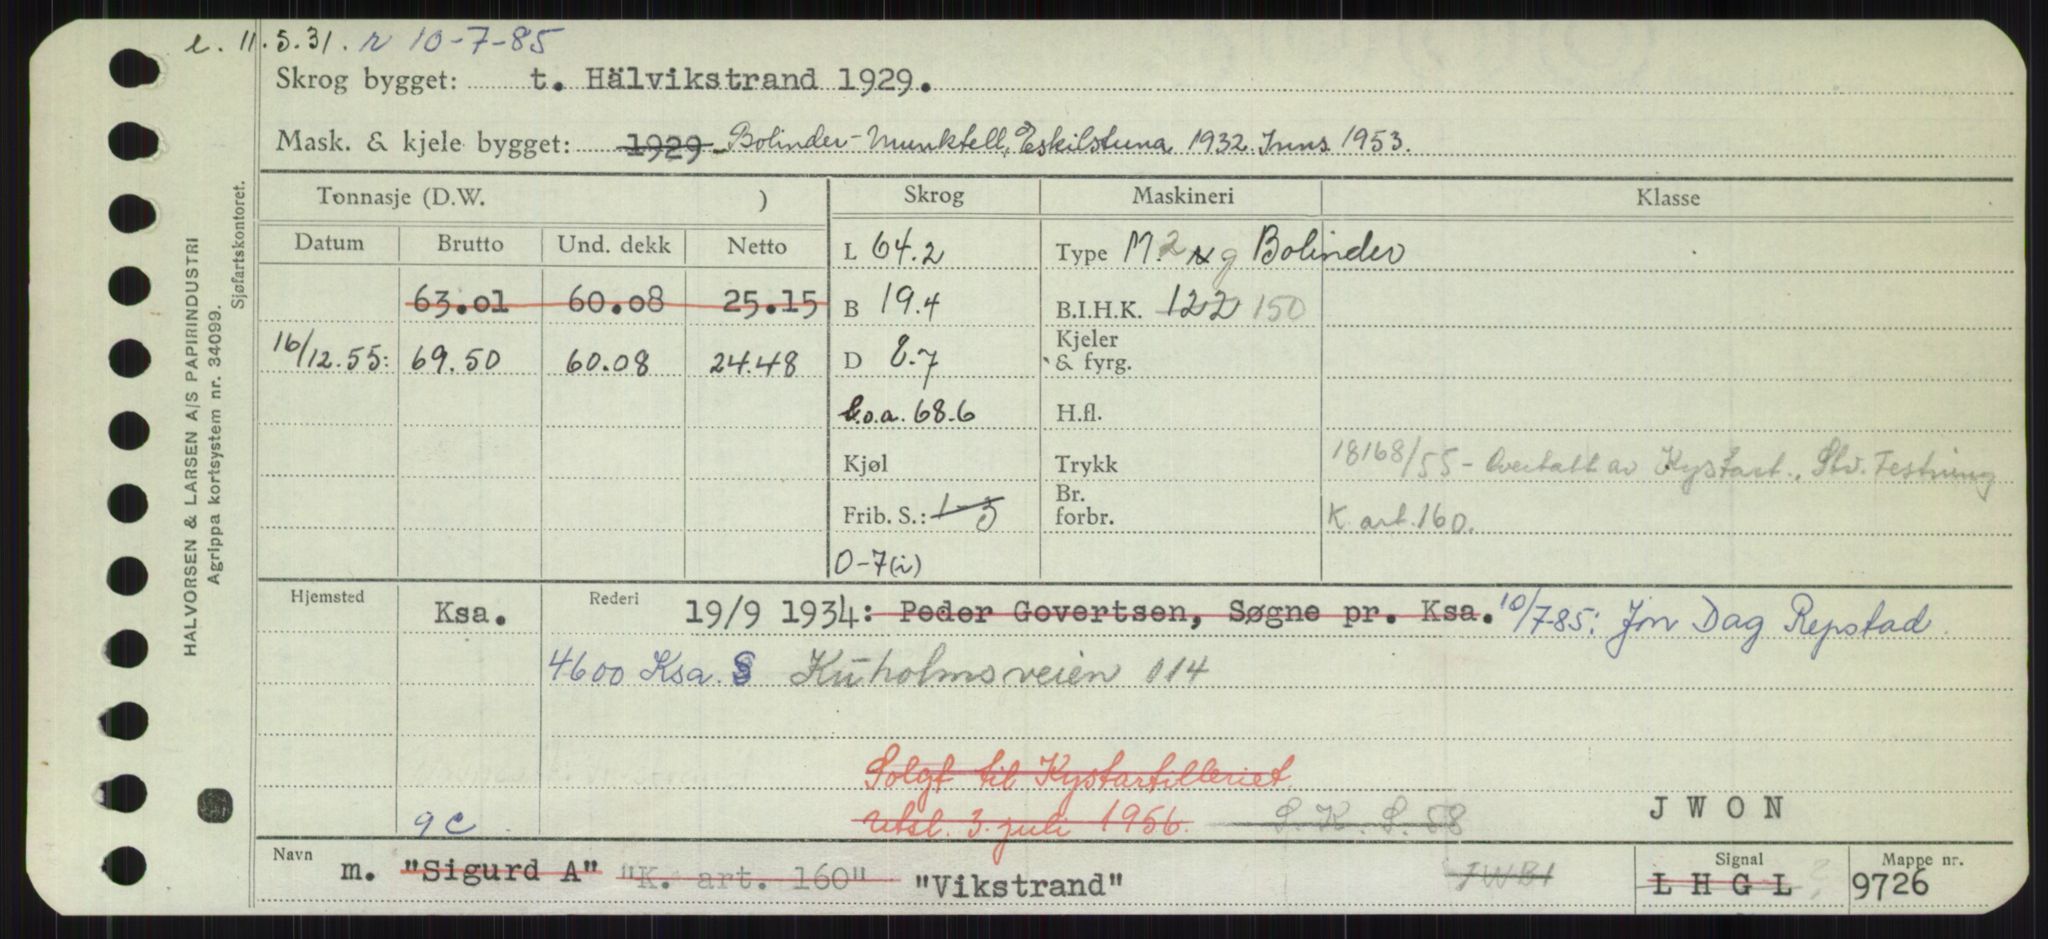 e. 11.5.31. r 10-7-85
Skrog bygget: t. Hälvikstrand 1929.
Mask. & kjele bygget: 1929 - Bolinder-Munktell, Eskilstuna 1932. Inns. 1953.
Tonnasje (D.W. ) Skrog Maskineri Klasse
Datum Brutto Und. dekk Netto L 64.2 Type M. 2 x g Bolinder
63.01 60.08 25.15 B 19.4 B.I.H.K. 122 150
16/12.55: 69.50 60.08 24.48 D 8.7 Kjeler & fyrg.
l.o.a. 68.6 H.fl.
Kjøl Trykk 18168/55 - Overtatt av Kystart., Stv. Festning
Frib. S.: 1-3 Br. forbr. K. art. 160.
0-7(i)
Hjemsted Ksa. Rederi 19/9 1934: Peder Govertsen, Søgne pr. Ksa. 10/7-85: Jon Dag Repstad
4600 Ksa. S Kuholmsveien 114
Solgt til Kystartilleriet.
utsl. 3. juli 1956. S. K. S. 58
JWON
9c
Navn m. "Sigurd A" "K. art. 160" "Vikstrand" JWBI Signal LHGL ? Mappe nr. 9726
HALVORSEN & LARSEN A/S PAPIRINDUSTRI
Agrippa kortsystem nr. 34099.
Sjøfartskontoret.